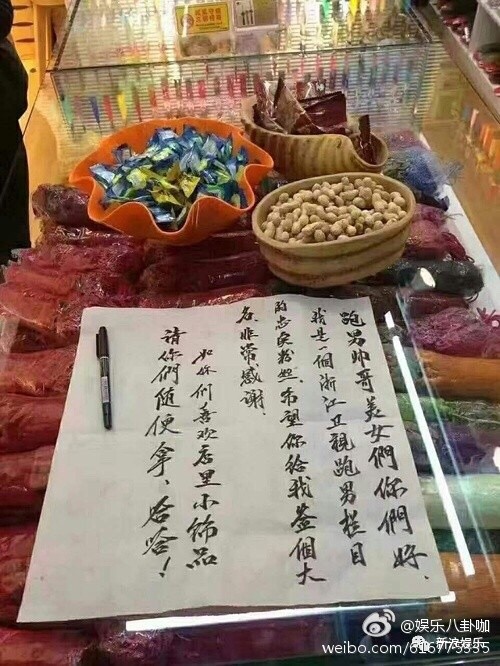 跑男帅哥美女們你們好、
我是一個浙江卫視跑男栏目
的忠实粉丝、希望你给我签個大
名、非常感謝、
如你们喜欢店里小饰品
請你們随便拿、哈哈！
@娱乐八卦咖
新浪娱乐
weibo.com/